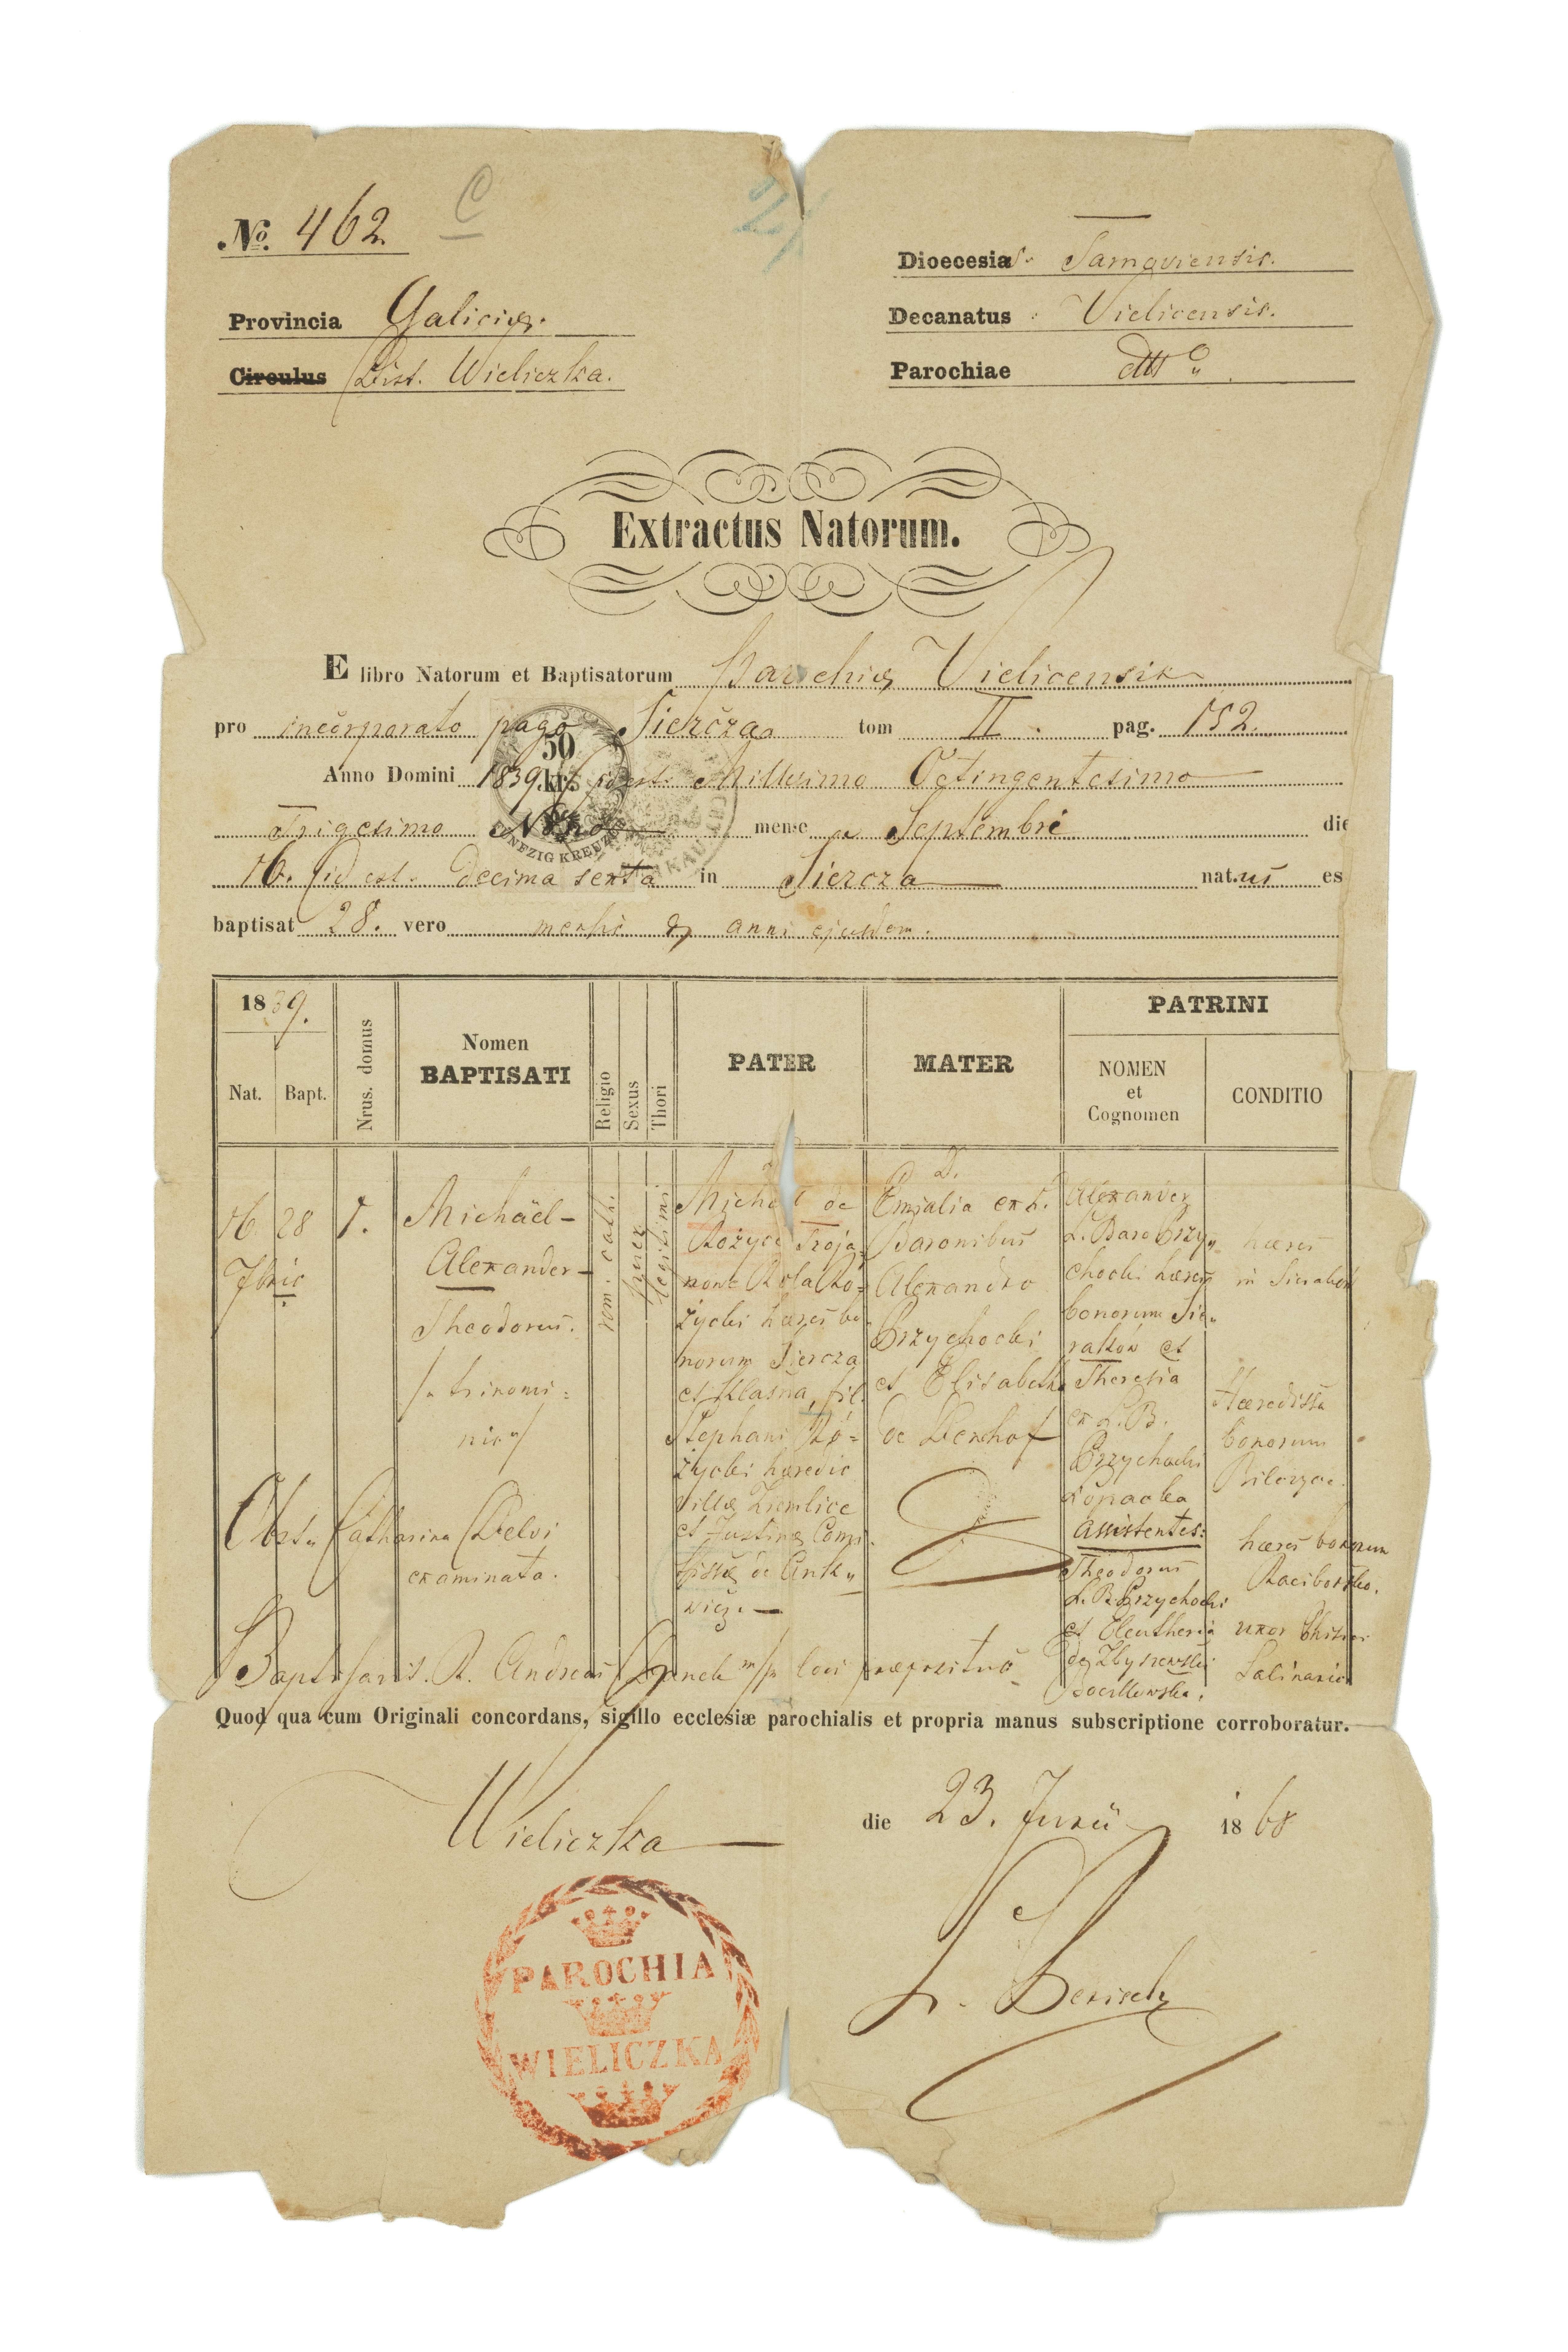 № 462
C
Dioecesia s. Tarnoviensis.
Provincia Galiciæ.
Decanatus Vielicensis.
Circulus Dist. Wieliczka.
Parochiae dtto
Extractus Natorum.
E libro Natorum et Baptisatorum Parochiæ Vielicensis
pro incorporato pago Siercza tom II. pag. 152.
50
kr.
Anno Domini 1839. id est. Millesimo Octingentesimo
Trigesimo Nono mense a Septembri die
FÜNFZIG KREUZER
16. id est. Decima sexta in Siercza nat.us es
baptisat 28. vero mensis & anni ejusdem.
1839.
Nat.
Bapt.
Nrus. domus
Nomen
BAPTISATI
Religio
Sexus
Thori
PATER
MATER
PATRINI
NOMEN
et
Cognomen
CONDITIO
16
28
7bris
1.
Michäel-
Alexander-
Theodorus.
/: trinomi=
nis :/
rom. cath.
puer
legitimi
Michael de
Rożyce Troja
nowc Rola Ro=
życki hæres bo-
norum Siercza
et Klasna, fil.
Stephani Ro=
życki hæredis
villæ Zremlice
et Justinæ Comi
tissæ de Ank„
wicz.—
D.
Emialia ex L.
Baronibus
Alexandro
Przychocki
et Elisabetha
de Denhof
Alexander
L. Baro Przy„
chocki hæres
bonorum Sie„
raków et
Theresia
ex L. B.
Przychocki
Łopacka
assistentes:
Theodorus
L. B. Przychocki
et Eleutheria
de Zbyszewski
hæres
in Sieraków
Hæredissa
bonorum
hæres bonorum
Raciborsko.
uxor
Salinaris
Obst. Catharina
examinata.
Baptisavit. R. Andreas m/p loci præpositus
Quod qua cum Originali concordans, sigillo ecclesiæ parochialis et propria manus subscriptione corroboratur.
Wieliczka die 23. Junii 1868
PAROCHIA
WIELICZKA